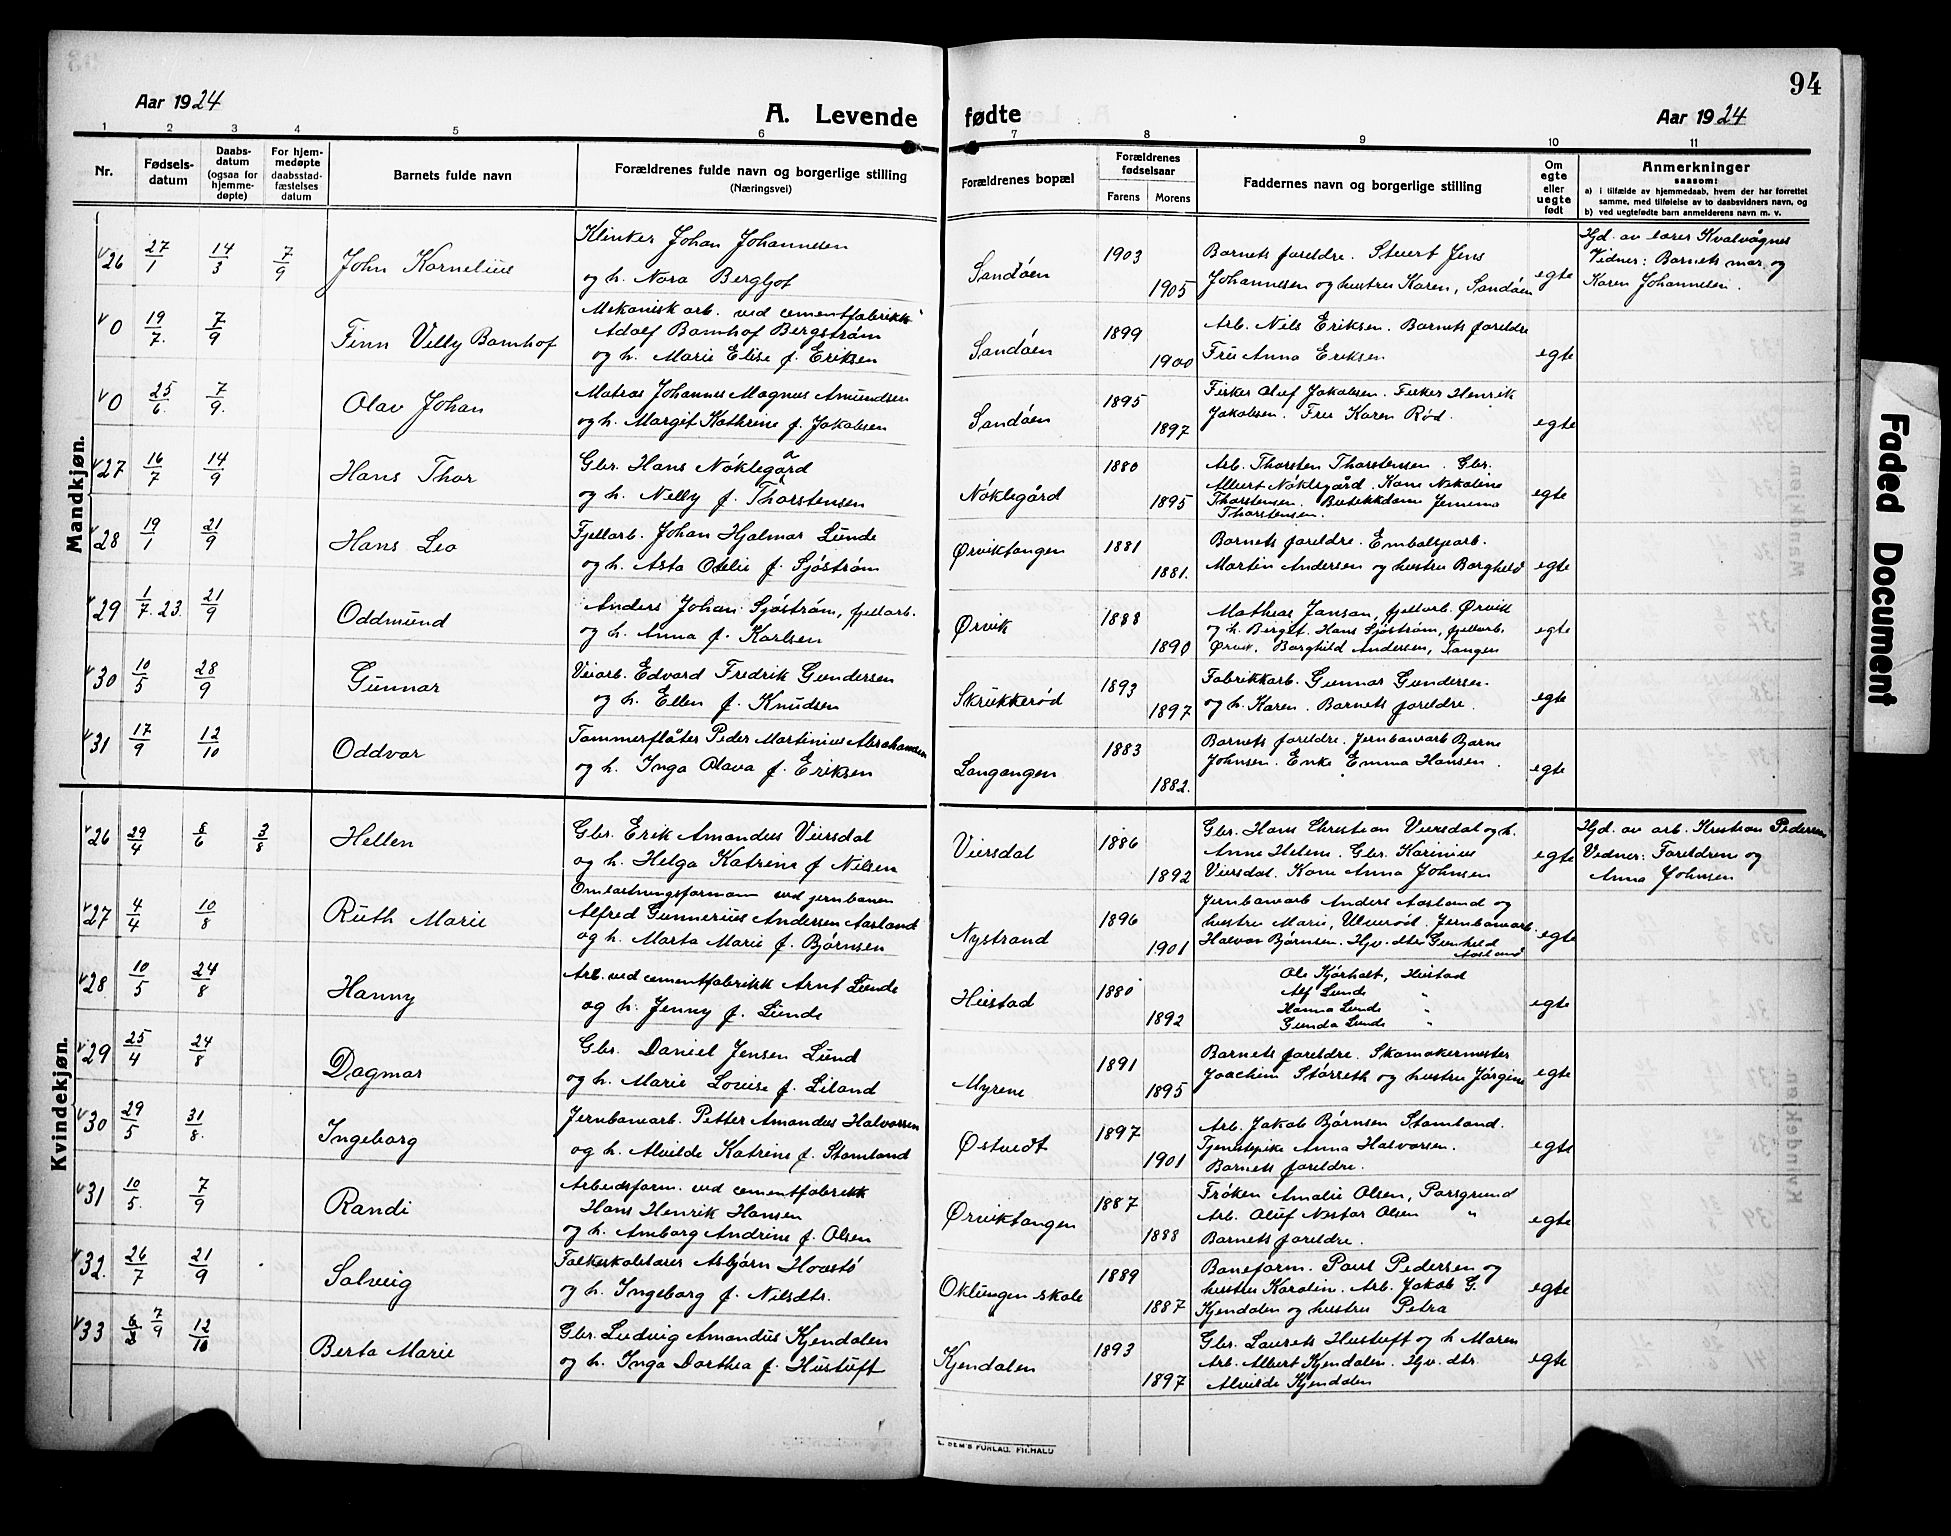 94
Aar 1924
A. Levende
fødte
Aar 1924
1 2 3 4 5 6 7 8 9 10 11
Nr.
Fødsels-
datum
Daabs-
datum
(ogsaa for
hjemme-
døpte)
For hjem-
medøpte
daabsstad-
fæstelses
datum
Barnets fulde navn
Forældrenes fulde navn og borgerlige stilling
(Næringsvei)
Forældrenes bopæl
Forældrenes
fødselsaar
Farens Morens
Faddernes navn og borgerlige stilling
Om
egte
eller
uegte
født
Anmerkninger
saasom:
a) i tilfælde av hjemmedaab, hvem der har forrettet
samme, med tilføielse av to daabsvidners navn, og
b) ved uegtefødte barn anmelderens navn m. v.
Mandkjøn.
26 27/1 14/3 7/9 John Kornelius
Klinker Johan Johannesen
og h. Nora Bergljot
Sandöen 1903 1905
Barnets foreldre. Stuert Jens
Johannesen og hustru Karen, Sandöen
egte
Hjd. av lærer Kvalvågnes
Vidner: Barnets mor og
Karen Johannesen.
0 19/7. 7/9 Finn Villy Bamhof
Mekanisk arb. ved cementfabrikk
Adolf Bamhof Bergström
og h. Marie Elise f. Eriksen
Sandöen 1899 1900
Arb. Nils Eriksen. Barnets foreldre
Fru Anna Eriksen
egte
0 25/6. 7/9. Olav Johan
Matros Johannes Magnus Amundsen
og h. Margit Kathrine f. Jakobsen
Sandöen 1895 1897
Fisker Oluf Jakobsen. Fisker Henrik
Jakobsen. Fru Karen Rød.
egte
27 16/7 14/9 Hans Thor
Gbr. Hans Nöklegård
og h. Nelly f. Thorstensen
Nöklegård 1880 1895
Arb. Thorsten Thorstensen. Gbr.
Albert Nöklegård. Kone Nikoline
Thorstensen. Butikkdame Jemima
Thorstensen.
egte
28 19/1 21/9 Hans Leo
Fjellarb. Johan Hjalmar Lunde
og h. Asta Otilie f. Sjöström
Ørviktangen 1881 1881.
Barnets foreldre. Emballsjearb.
Martin Andersen og hustru Borghild
egte
29 1/7. 23. 21/9 Oddmund
Anders Johan Sjöström, fjellarb.
og h. Anna f. Karlsen
Ørvik 1888 1890
Mathias Janson, fjellarb. Ørvik
og h. Berget. Hans Sjöström, fjellarb.
Ørvik. Borghild Andersen, Tangen
egte
30 10/5 28/9 Gunnar
Veiarb. Edvard Fredrik Gundersen
og h. Ellen f. Knudsen
Skrukkerød 1893 1897
Fabrikkarb. Gunnar Gundersen
og h. Karen. Barnets foreldre.
egte
31 17/9 12/10 Oddvar
Tømmerflåter Peder Martinius Abrahamsen
og h. Inga Olava f. Eriksen
Langangen 1883 1882.
Barnets foreldre. Jernbanearb Bjarne
Johnsen. Enke Emma Hansen.
egte
Kvindekjøn.
26 29/4 8/6 3/8 Hellen
Gbr. Erik Amandus Viersdal
og h. Helga Katrine f Nilsen
Viersdal 1886 1892
Gbr. Hans Christian Viersdal og h.
Anne Helene. Gbr. Karinius
Viersdal. Kone Anna Johnsen
egte
Hjd. av arb. Kristian Pedersen
Vidner: Foreldrene og
Anna Johnsen
27 4/4 10/8 Ruth Marie
Omlastningsformann ved jernbanen
Alfred Gunnerius Andersen Aasland
og h. Marta Marie f. Bjørnsen
Nystrand 1896 1901
Jernbanearb Anders Aasland og
hustru Marie, Ulverød. Jernbanearb.
Halvor Bjørnsen. Hjv. dtr Gunhild
Aasland
egte
28 10/5 24/8 Hanny
Arb. ved cementfabrikk Arnt Lunde
og h. Jenny f. Lunde
Hustad 1880 1892
Ole Kjørholt, Hustad
Alf Lunde "
Hanna Lunde "
Gunda Lunde "
egte
29 25/4 24/8 Dagmar
Gbr. Daniel Jensen Lund
og h. Marie Lovise f. Liland
Myrene 1891 1895
Barnets foreldre. Skomakermester
Joachim Störseth og hustru Jörgine
egte
30 29/5 31/8. Ingeborg
Jernbanearb. Petter Amandus Halvorsen
og h. Alvilde Katrine f. Stamland
Østvedt 1897 1901
Arb. Jakob Bjørnsen Stamland.
Tjenestepike Anna Halvorsen.
Barnets foreldre.
egte
31 10/5. 7/9 Randi
Arbeidsform. ved cementfabrikk
Hans Henrik Hansen
og h. Amborg Andrine f. Olsen
Ørviktangen 1887 1888
Fröken Amalie Olsen, Porsgrund
Arb. Oluf Nestor Olsen "
Barnets foreldre.
egte
32. 26/7 21/9 Solveig
Folkeskolelærer Asbjörn Hovstö
og h. Ingeborg f. Nilsdtr.
Oklungen skole 1889 1887
Baneform. Paul Pedersen og
hustru Karolin. Arb. Jakob G.
Kjendalen og hustru Petra
egte
33 6/8 7/9 12/10 Berta Marie
Gbr. Ludvig Amandus Kjendalen
og h. Inga Dorthea f. Hustuft
Kjendalen 1893 1897
Gbr. Laurets Hustuft og h Maren
Arb. Albert Kjendalen. Hjv. dtr.
Alvilde Kjendalen
egte
E. SEM'S FORLAG, FR.HALD
Faded Document